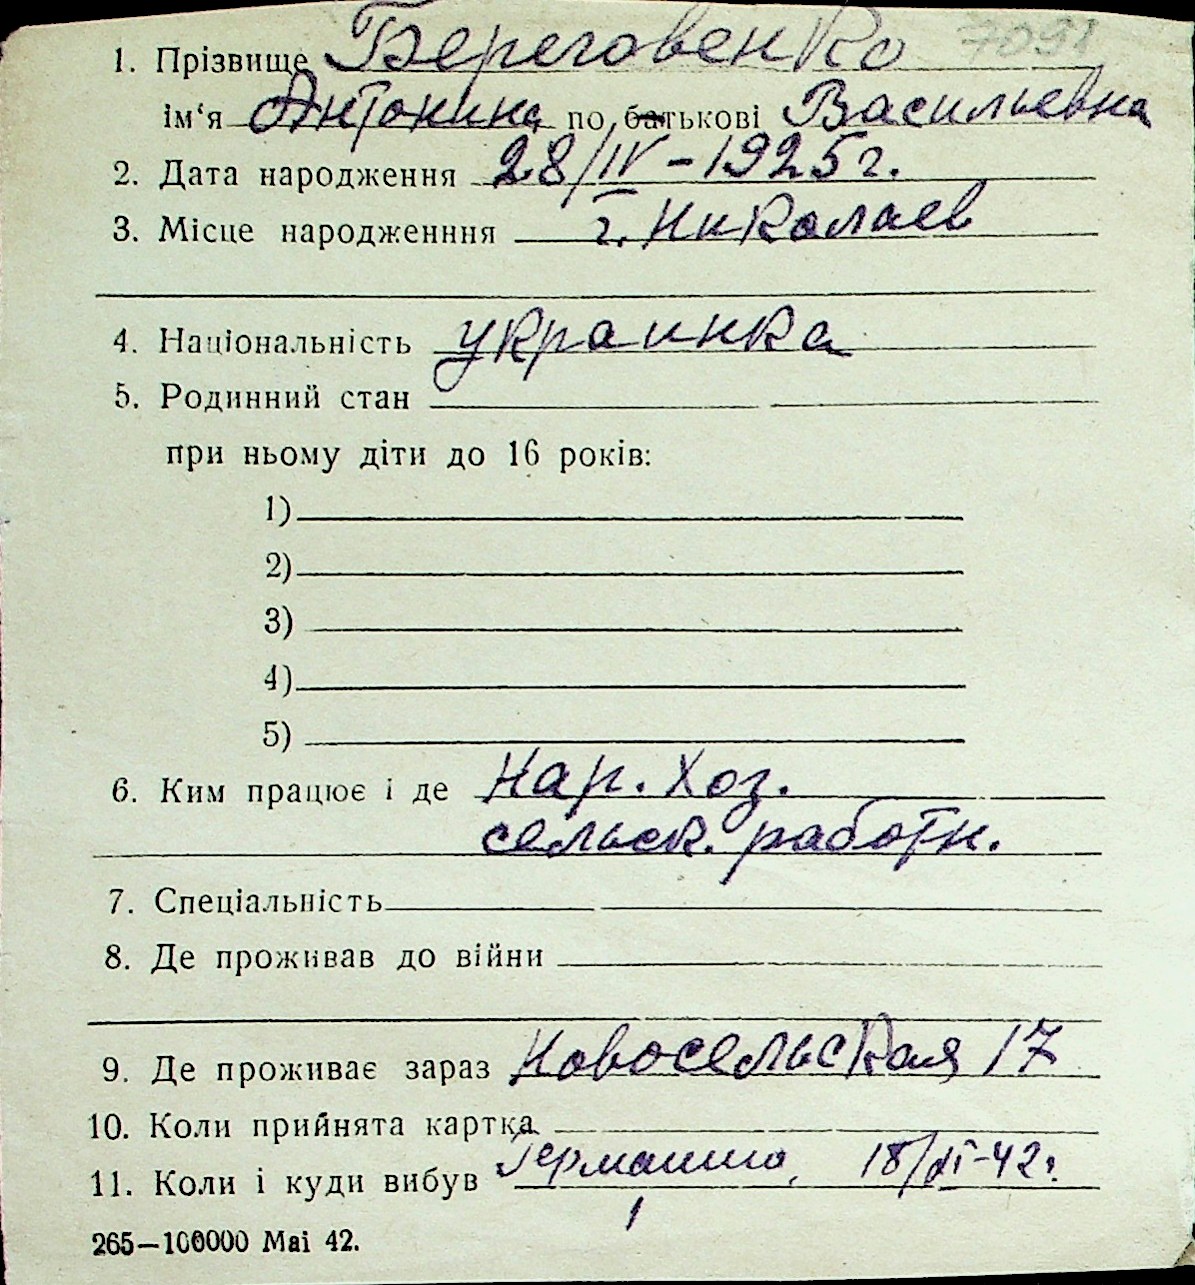 1. Прізвище Береговенко 7091
ім‘я Антонина по батькові Васильевна
2. Дата народження 28/IV-1925г.
3. Місце народженння г. Николаев
4. Національність украинка
5. Родинний стан
при ньому діти до 16 років:
1)
2)
3)
4)
5)
6. Ким працює і де Нар. Хоз.
сельск. работн.
7. Спеціальність
8. Де проживав до війни
9. Де проживає зараз Новосельская 17
10. Коли прийнята картка
11. Коли і куди вибув Германию, 18/VI-42г.
265—100000 Mai 42.